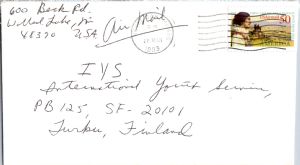 600 Beck Rd.
Walled Lake, Mi
48390 USA
Air Mail
1993
50
I Y S
International Youth Service,
PB 125, SF-20101
Turku, Finland